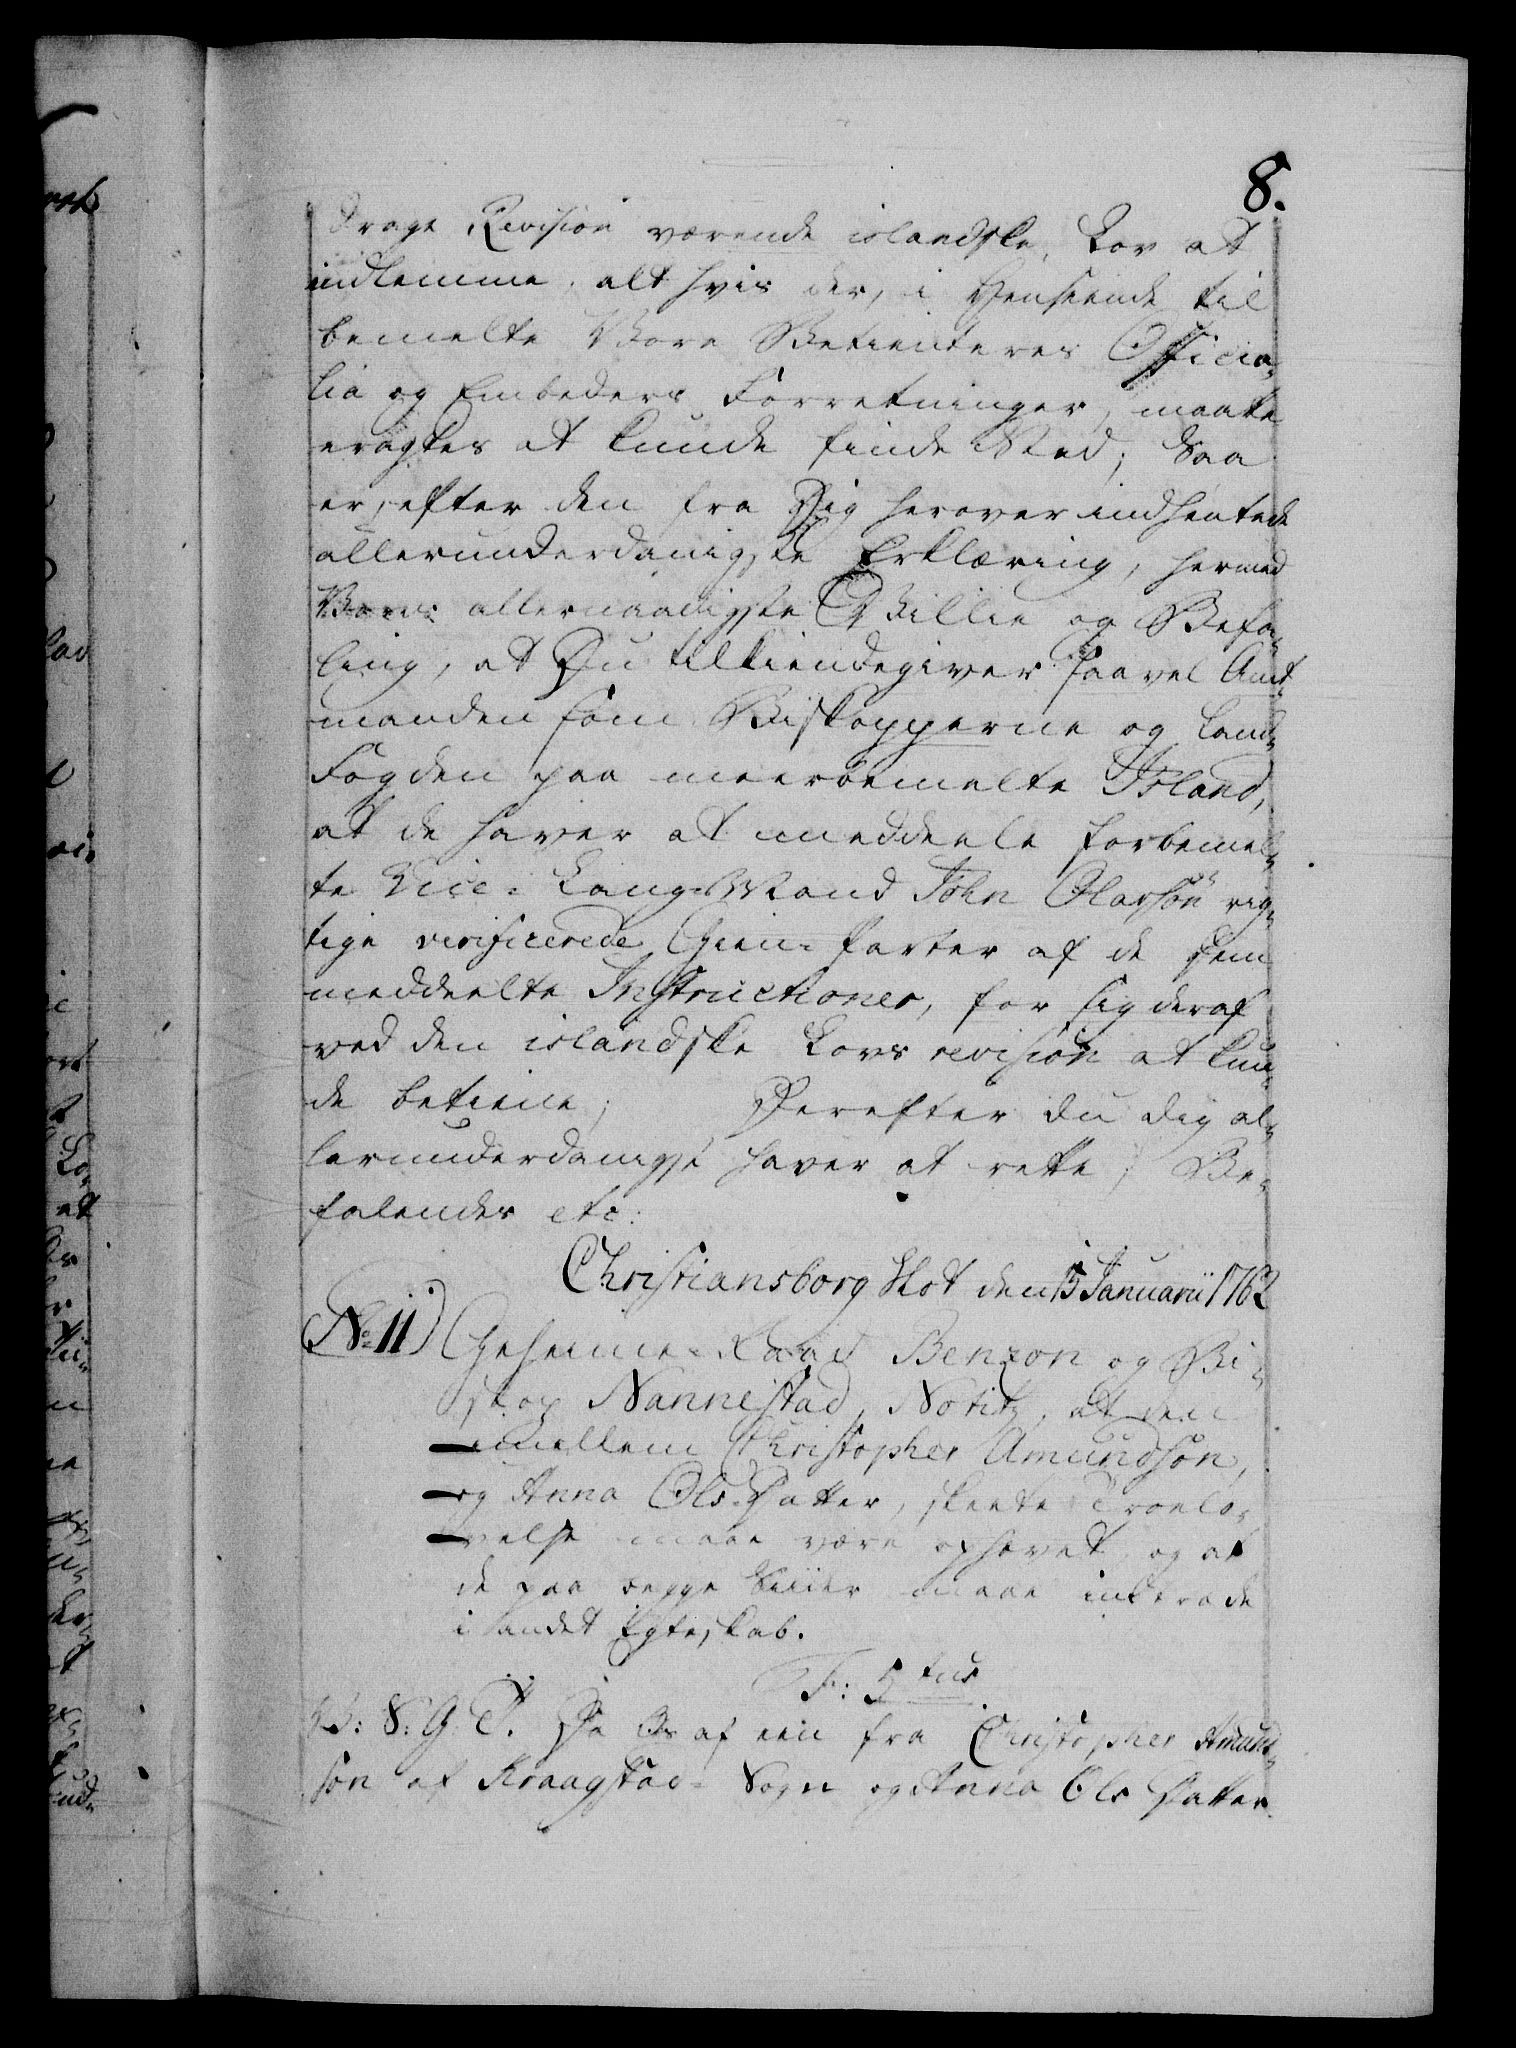 8.
drage Revision værende islandske Lov at
indlemme alt hvis der, i Henseende til
bemelte Vore Betienteres Officia-
lia og Embeders Forretninger, maatte
eragtes at kunde finde Sted; Saa
er, efter den fra Dig herover indhentede
allerunderdanigste Erklæring, hermed
Vores allernaadigste Villie og Befa-
ling, at Du tilkiendegiver saavel Amt-
manden som Biskopperne og Land-
Fogden paa meerbemelte Island,
at de haver at meddeele forbemel-
te Vice-Laug-Mand John Olavson rig-
tige verificerede Gien-Parter af de dem
meddeelte Instructioner, for sig deraf
ved den islandske Lovs revision at kun-
de betiene; Derefter du dig al-
lerunderdanigst haver at rette, Be-
falendes etc:
Christiansborg Slot den 15 Januarii 1762
No 11) Geheime-Raad Benzon og Bi-
skop Nannestad, Notitz, at den
imellem Christopher Amundsøn,
og Anna Ols Datter, skeete Troelo-
velse maae være ophævet, og at
de paa begge Siider maae indtræde
i andet Egteskab.
F: 5tus
V: S: G: T. Da Os af een fra Christopher Amund-
søn af Kraagstad-Sogn og Anna Ols Datter